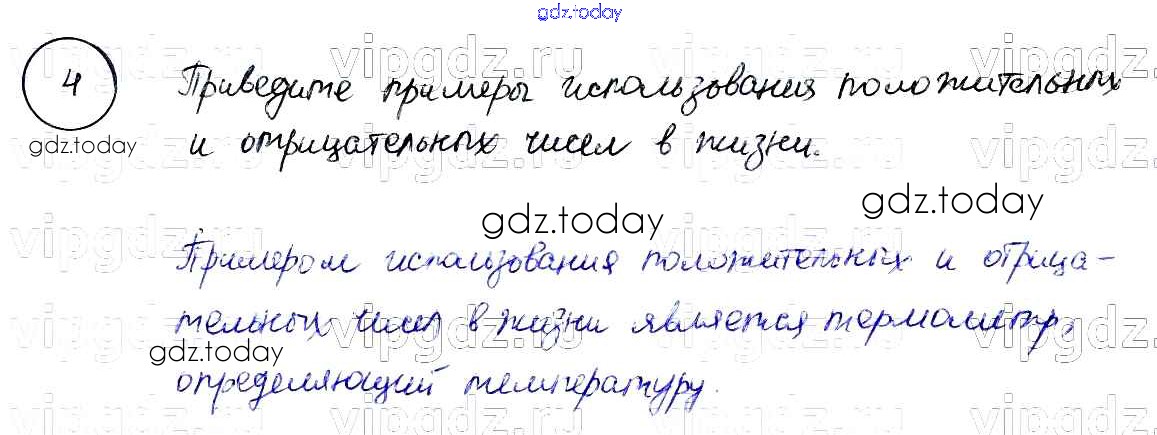 gdz.today
4
Приведите примеры использования положительных
и отрицательных чисел в жизни.
gdz.today
gdz.today
gdz.today
Примером использования положительных и отрица-
тельных чисел в жизни является термометр,
gdz.today
определяющий температуру.
vipgdz.ru